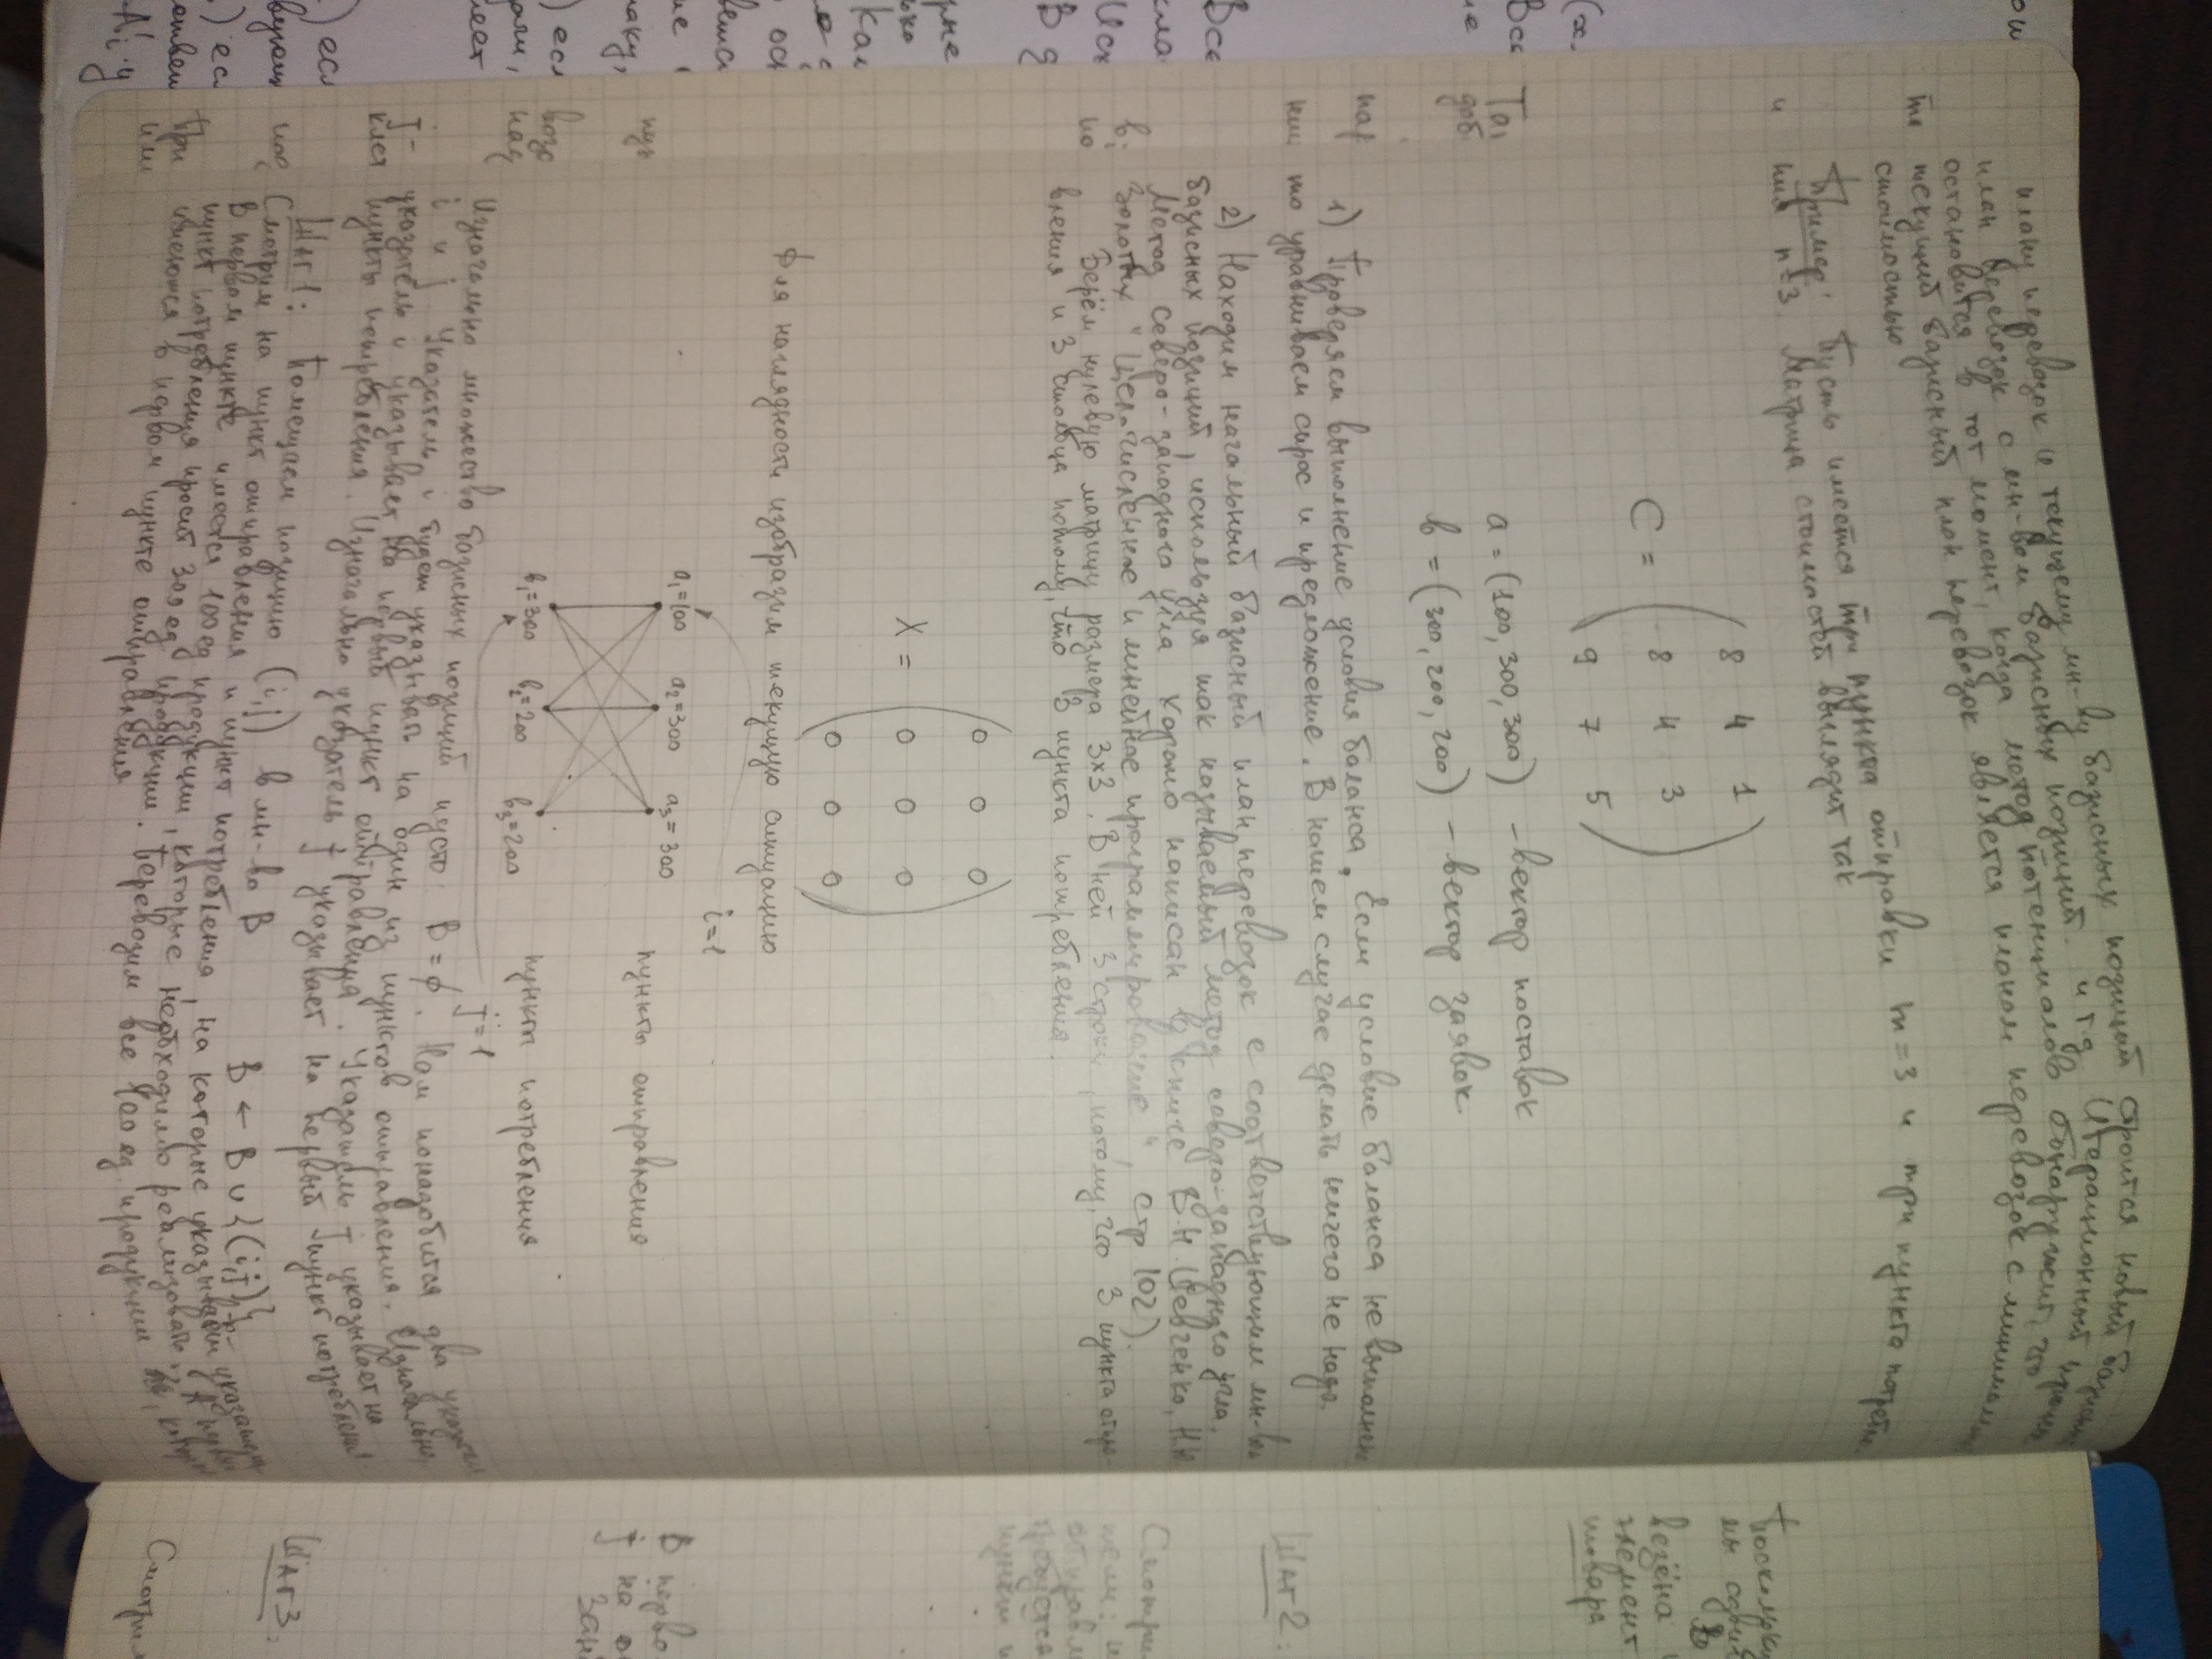 плану перевозок и текущему мн-ву базисных позиций строится новый базисный
план перевозок с мн-вом базисных позиций. и т.д. Итерационный процесс
остановится в тот момент, когда метод потенциалов обнаружит, что
текущий базисный план перевозок является планом перевозок с минимальной
стоимостью
Пример: Пусть имеется три пункта отправки m=3 и три пункта потребле-
ния n=3. Матрица стоимостей выглядит так
C =
8 4 1
8 4 3
9 7 5
a = (100, 300, 300) - вектор поставок
b = (300, 200, 200) - вектор заявок
1) Проверяем выполнение условия баланса. Если условие баланса не выполнено
то уравниваем спрос и предложение. В нашем случае делать ничего не надо.
2) Находим начальный базисный план перевозок с соответствующим мн-вом
базисных позиций, используя так называемый метод северо-западного угла.
Метод северо-западного угла хорошо написан в книге В.Н. Шевченко, Н.Ю.
Золотых "Целочисленное и линейное программирование", стр 102).
Берём нулевую матрицу размера 3x3. В ней 3 строки, потому, что 3 пункта отпра-
вления и 3 столбца потому, что 3 пункта потребления.
X =
0 0 0
0 0 0
0 0 0
Для наглядности изобразим текущую ситуацию
i=1
a₁=100 a₂=300 a₃=300
пункты отправления
b₁=300 b₂=200 b₃=200
пункты потребления
j=1
Изначально множество базисных позиций пусто B = ∅. Нам понадобится два указателя
i и j. Указатель i будет указывать на один из пунктов отправления. Изначально,
указатель i указывает на первый пункт отправления. Указатель j указывает на
пункты потребления. Изначально указатель j указывает на первый пункт потребления.
Шаг 1: Помещаем позицию (i,j) в мн-во B B ← B ∪ {(i,j)}
Смотрим на пункт отправления и пункт потребления, на которые указывают указатели.
В первом пункте имеется 100 ед продукции, которые необходимо реализовать. А первый
пункт потребления просит 300 ед продукции. Перевозим все 100 ед. продукции, которые
имеются в первом пункте отправления
Поскольку
мы сдвиг
везёна
элемент
товара
Шаг 2:
Смотрим
отправл
требуется
пункт
В перво
j на
Зан
Шаг 3.
Смотрим